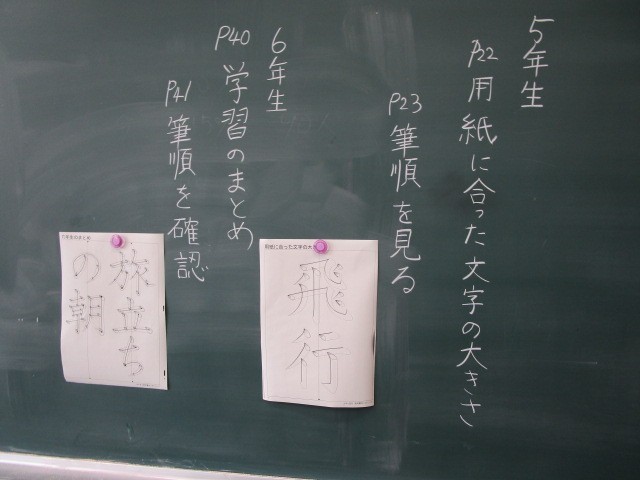 5年生
P22 用紙に合った文字の大きさ
P23 筆順を見る
6年生
P40 学習のまとめ
P41 筆順を確認
用紙に合った文字の大
飛行
旅立ち
の朝